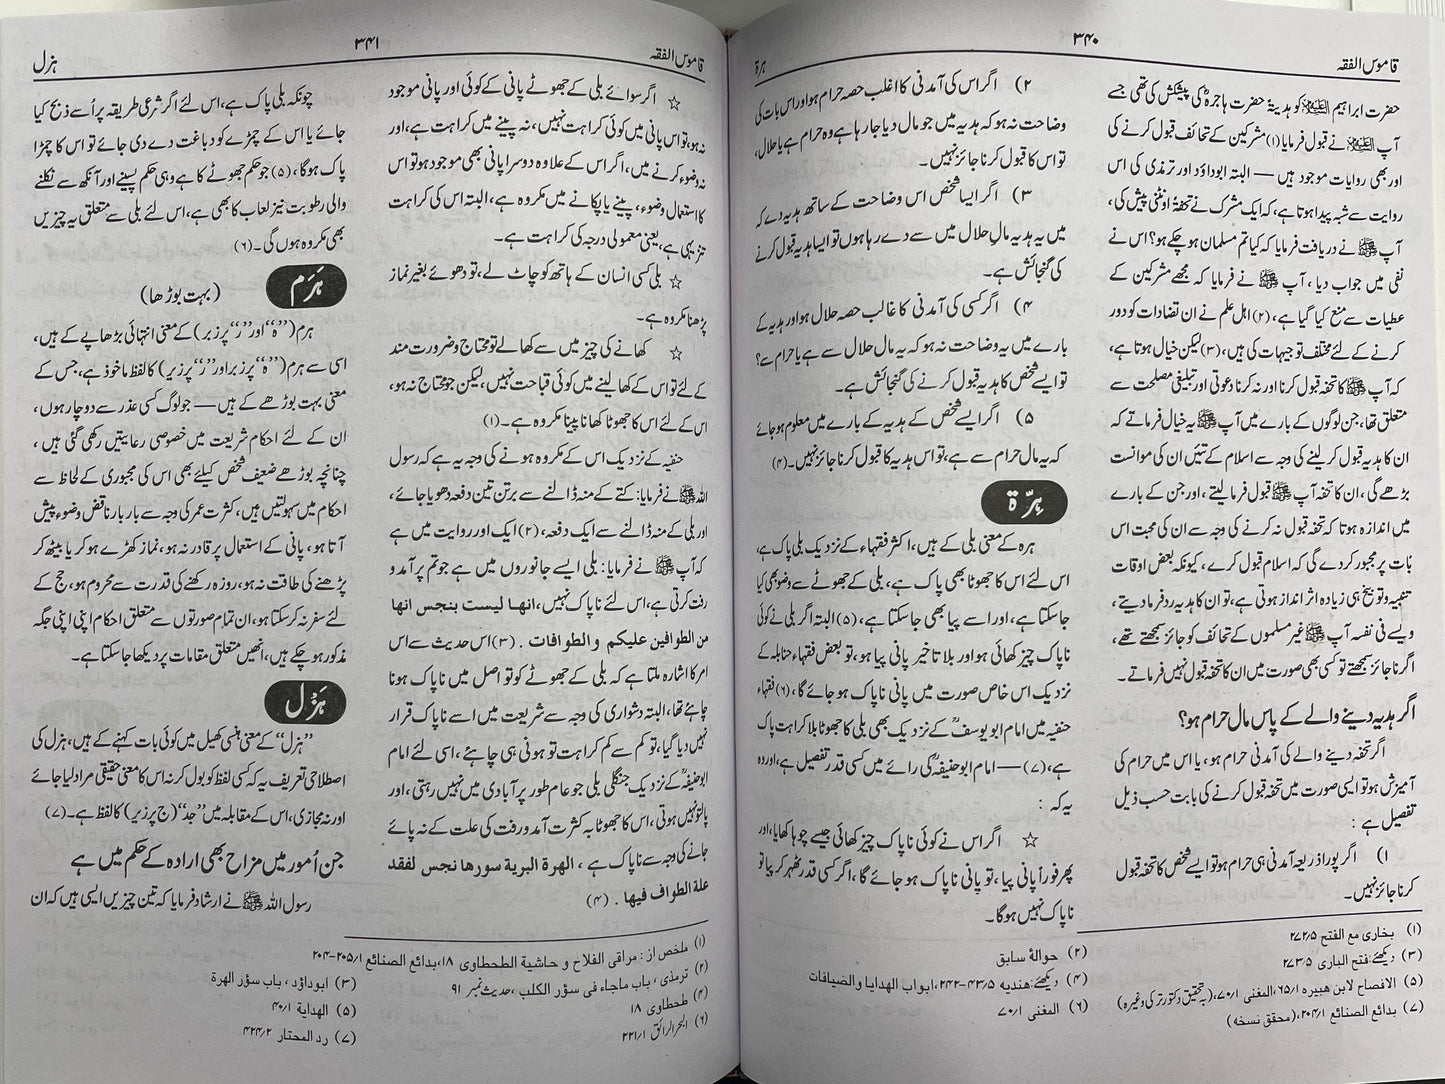 قاموس الفقہ
۳۴۰
ہرۃ
حضرت ابراہیم علیہ السلام کو ہدیۃً حضرت ہاجرہؓ کی پیشکش کی تھی جسے
آپ علیہ السلام نے قبول فرمایا (۱) مشرکین کے تحائف قبول کرنے کی
اور بھی روایات موجود ہیں — البتہ ابوداؤد اور ترمذی کی اس
روایت سے شبہ پیدا ہوتا ہے، کہ ایک مشرک نے تحفۃً اونٹنی پیش کی،
آپ ﷺ نے دریافت فرمایا کہ کیا تم مسلمان ہو چکے ہو؟ اس نے
نفی میں جواب دیا، آپ ﷺ نے فرمایا کہ مجھے مشرکین کے
عطیات سے منع کیا گیا ہے، (۲) اہل علم نے ان تضادات کو دور
کرنے کے لئے مختلف توجیہات کی ہیں، (۳) لیکن خیال ہوتا ہے،
کہ آپ ﷺ کا تحفہ قبول کرنا اور نہ کرنا دعوتی اور تبلیغی مصلحت سے
متعلق تھا، جن لوگوں کے بارے میں آپ ﷺ یہ خیال فرماتے کہ
ان کا ہدیہ قبول کر لینے کی وجہ سے اسلام کے تئیں ان کی موانست
بڑھے گی، ان کا تحفہ آپ ﷺ قبول فرما لیتے، اور جن کے بارے
میں اندازہ ہوتا کہ تحفہ قبول نہ کرنے کی وجہ سے ان کی محبت اس
بات پر مجبور کردے گی کہ اسلام قبول کرے، کیونکہ بعض اوقات
تنبیہ و توبیخ ہی زیادہ اثر انداز ہوتی ہے، تو ان کا ہدیہ رد فرما دیتے،
ویسے فی نفسہ آپ ﷺ غیر مسلموں کے تحائف کو جائز سمجھتے تھے،
اگر ناجائز سمجھتے تو کسی بھی صورت میں ان کا تحفہ قبول نہیں فرماتے۔
اگر ہدیہ دینے والے کے پاس مال حرام ہو؟
اگر تحفہ دینے والے کی آمدنی حرام ہو، یا اس میں حرام کی
آمیزش ہو تو ایسی صورت میں تحفہ قبول کرنے کی بابت حسب ذیل
تفصیل ہے :
۱) اگر پورا ذریعۂ آمدنی ہی حرام ہو تو ایسے شخص کا تحفہ قبول
کرنا جائز نہیں۔
۲) اگر اس کی آمدنی کا اغلب حصہ حرام ہو اور اس بات کی
وضاحت نہ ہو کہ ہدیہ میں جو مال دیا جا رہا ہے وہ حرام ہے یا حلال،
تو اس کا قبول کرنا جائز نہیں۔
۳) اگر ایسا شخص اس وضاحت کے ساتھ ہدیہ دے کہ
میں یہ ہدیہ مالِ حلال میں سے دے رہا ہوں تو ایسا ہدیہ قبول کرنے
کی گنجائش ہے۔
۴) اگر کسی کی آمدنی کا غالب حصہ حلال ہو اور ہدیہ کے
بارے میں یہ وضاحت نہ ہو کہ یہ مال حلال سے ہے یا حرام سے؟
تو ایسے شخص کا ہدیہ قبول کرنے کی گنجائش ہے۔
۵) اگر ایسے شخص کے ہدیہ کے بارے میں معلوم ہو جائے
کہ یہ مال حرام سے ہے، تو اس ہدیہ کا قبول کرنا جائز نہیں۔ (۴)
ہِرّۃ
ہرہ کے معنی بلی کے ہیں، اکثر فقہاء کے نزدیک بلی پاک ہے،
اس لئے اس کا جھوٹا بھی پاک ہے، بلی کے جھوٹے سے وضو بھی کیا
جا سکتا ہے، اور اسے پیا بھی جا سکتا ہے، (۵) البتہ اگر بلی نے کوئی
ناپاک چیز کھائی ہو اور بلا تاخیر پانی پیا ہو، تو بعض فقہاء حنابلہ کے
نزدیک اس خاص صورت میں پانی ناپاک ہو جائے گا، (۶) فقہاء
حنفیہ میں امام ابو یوسفؒ کے نزدیک بھی بلی کا جھوٹا بلا کراہت پاک
ہے، (۷) — امام ابوحنیفہؒ کی رائے میں کسی قدر تفصیل ہے، اور وہ
یہ کہ :
☆ اگر اس نے کوئی ناپاک چیز کھائی جیسے چوہا کھایا، اور
پھر فوراً پانی پیا، تو پانی ناپاک ہو جائے گا، اگر کسی قدر ٹھہر کر پیا تو
ناپاک نہیں ہوگا۔
(۱) بخاری مع الفتح ۲۷۲/۵
(۲) حوالۂ سابق
(۳) دیکھئے: فتح الباری ۲۷۳/۵
(۴) دیکھئے: هندیه ۴۳/۵-۲۴۲، ابواب الهدايا والضيافات
(۵) الافصاح لابن هبيره ۶۵/۱، المغنی ۷۰/۱، (بہ تحقیق دکتور ترکی وغیرہ)
(۶) المغنی ۷۰/۱
(۷) بدائع الصنائع ۲۰۴/۱، (محقق نسخه)
قاموس الفقہ
۳۴۱
ہزل
☆ اگر سوائے بلی کے جھوٹے پانی کے کوئی اور پانی موجود
نہ ہو، تو اس پانی میں کوئی کراہت نہیں، نہ پینے میں کراہت ہے، اور
نہ وضوء کرنے میں، اگر اس کے علاوہ دوسرا پانی بھی موجود ہو تو اس
کا استعمال وضوء، پینے یا پکانے میں مکروہ ہے، البتہ اس کی کراہت
تنزیہی ہے، یعنی معمولی درجہ کی کراہت ہے۔
☆ بلی کسی انسان کے ہاتھ کو چاٹ لے، تو دھوئے بغیر نماز
پڑھنا مکروہ ہے۔
☆ کھانے کی چیز میں سے کھالے تو محتاج و ضرورت مند
کے لئے تو اس کے کھا لینے میں کوئی قباحت نہیں، لیکن جو محتاج نہ ہو،
اس کے لئے اس کا جھوٹا کھانا پینا مکروہ ہے۔ (۱)
حنفیہ کے نزدیک اس کے مکروہ ہونے کی وجہ یہ ہے کہ رسول
اللہ ﷺ نے فرمایا: کتے کے منہ ڈالنے سے برتن تین دفعہ دھویا جائے،
اور بلی کے منہ ڈالنے سے ایک دفعہ، (۲) ایک اور روایت میں ہے
کہ آپ ﷺ نے فرمایا: بلی ایسے جانوروں میں ہے جو تم پر آمد و
رفت کرتی ہے، اس لئے ناپاک نہیں، انها ليست بنجس انها
من الطوافين عليكم والطوافات . (۳) اس حدیث سے اس
امر کا اشارہ ملتا ہے کہ بلی کے جھوٹے کو تو اصل میں ناپاک ہونا
چاہئے تھا، البتہ دشواری کی وجہ سے شریعت میں اسے ناپاک قرار
نہیں دیا گیا، تو کم سے کم کراہت تو ہونی ہی چاہئے، اسی لئے امام
ابوحنیفہؒ کے نزدیک جنگلی بلی جو عام طور پر آبادی میں نہیں رہتی، اور
پالتو نہیں ہوتی، اس کا جھوٹا بہ کثرت آمد و رفت کی علت کے نہ پائے
جانے کی وجہ سے ناپاک ہے، الهرة البرية سورها نجس لفقد
علة الطواف فيها . (۴)
چونکہ بلی پاک ہے، اس لئے اگر شرعی طریقہ پر اُسے ذبح کیا
جائے یا اس کے چمڑے کو دباغت دے دی جائے تو اس کا چمڑا
پاک ہوگا، (۵) جو حکم جھوٹے کا ہے وہی حکم پسینے اور آنکھ سے نکلنے
والی رطوبت نیز لعاب کا بھی ہے، اس لئے بلی سے متعلق یہ چیزیں
بھی مکروہ ہوں گی۔ (۶)
ہَرَم (بہت بوڑھا)
ہرم (”ہ“ اور ”ر“ پر زبر) کے معنی انتہائی بڑھاپے کے ہیں،
اسی سے ہرم (”ہ“ پر زبر اور ”ر“ پر زیر) کا لفظ ماخوذ ہے، جس کے
معنی بہت بوڑھے کے ہیں — جو لوگ کسی عذر سے دوچار ہوں،
ان کے لئے احکام شریعت میں خصوصی رعایتیں رکھی گئی ہیں،
چنانچہ بوڑھے ضعیف شخص کیلئے بھی اس کی مجبوری کے لحاظ سے
احکام میں سہولتیں ہیں، کثرت عمر کی وجہ سے بار بار ناقض وضوء پیش
آتا ہو، پانی کے استعمال پر قادر نہ ہو، نماز کھڑے ہو کر یا بیٹھ کر
پڑھنے کی طاقت نہ ہو، روزہ رکھنے کی قدرت سے محروم ہو، حج کے
لئے سفر نہ کر سکتا ہو، ان تمام صورتوں سے متعلق احکام اپنی اپنی جگہ
مذکور ہو چکے ہیں، انھیں متعلق مقامات پر دیکھا جا سکتا ہے۔
ہَزْل
”ہزل“ کے معنی ہنسی کھیل میں کوئی بات کہنے کے ہیں، ہزل کی
اصطلاحی تعریف یہ کہ کسی لفظ کو بول کر نہ اس کا معنی حقیقی مراد لیا جائے
اور نہ مجازی، اس کے مقابلہ میں ”جد“ (ج پر زیر) کا لفظ ہے۔ (۷)
جن اُمور میں مزاح بھی ارادہ کے حکم میں ہے
رسول اللہ ﷺ نے ارشاد فرمایا کہ تین چیزیں ایسی ہیں کہ ان
(۱) ملخص از: مراقی الفلاح و حاشية الطحطاوی ۱۸، بدائع الصنائع ۲۰۵/۱-۲۰۴
(۲) ترمذی، باب ماجاء فی سؤر الكلب، حدیث نمبر ۹۱
(۳) ابوداؤد، باب سؤر الهرة
(۴) طحطاوی ۱۸
(۵) الهداية ۴۰/۱
(۶) البحر الرائق ۲۲۱/۱
(۷) رد المحتار ۴۲۴/۲